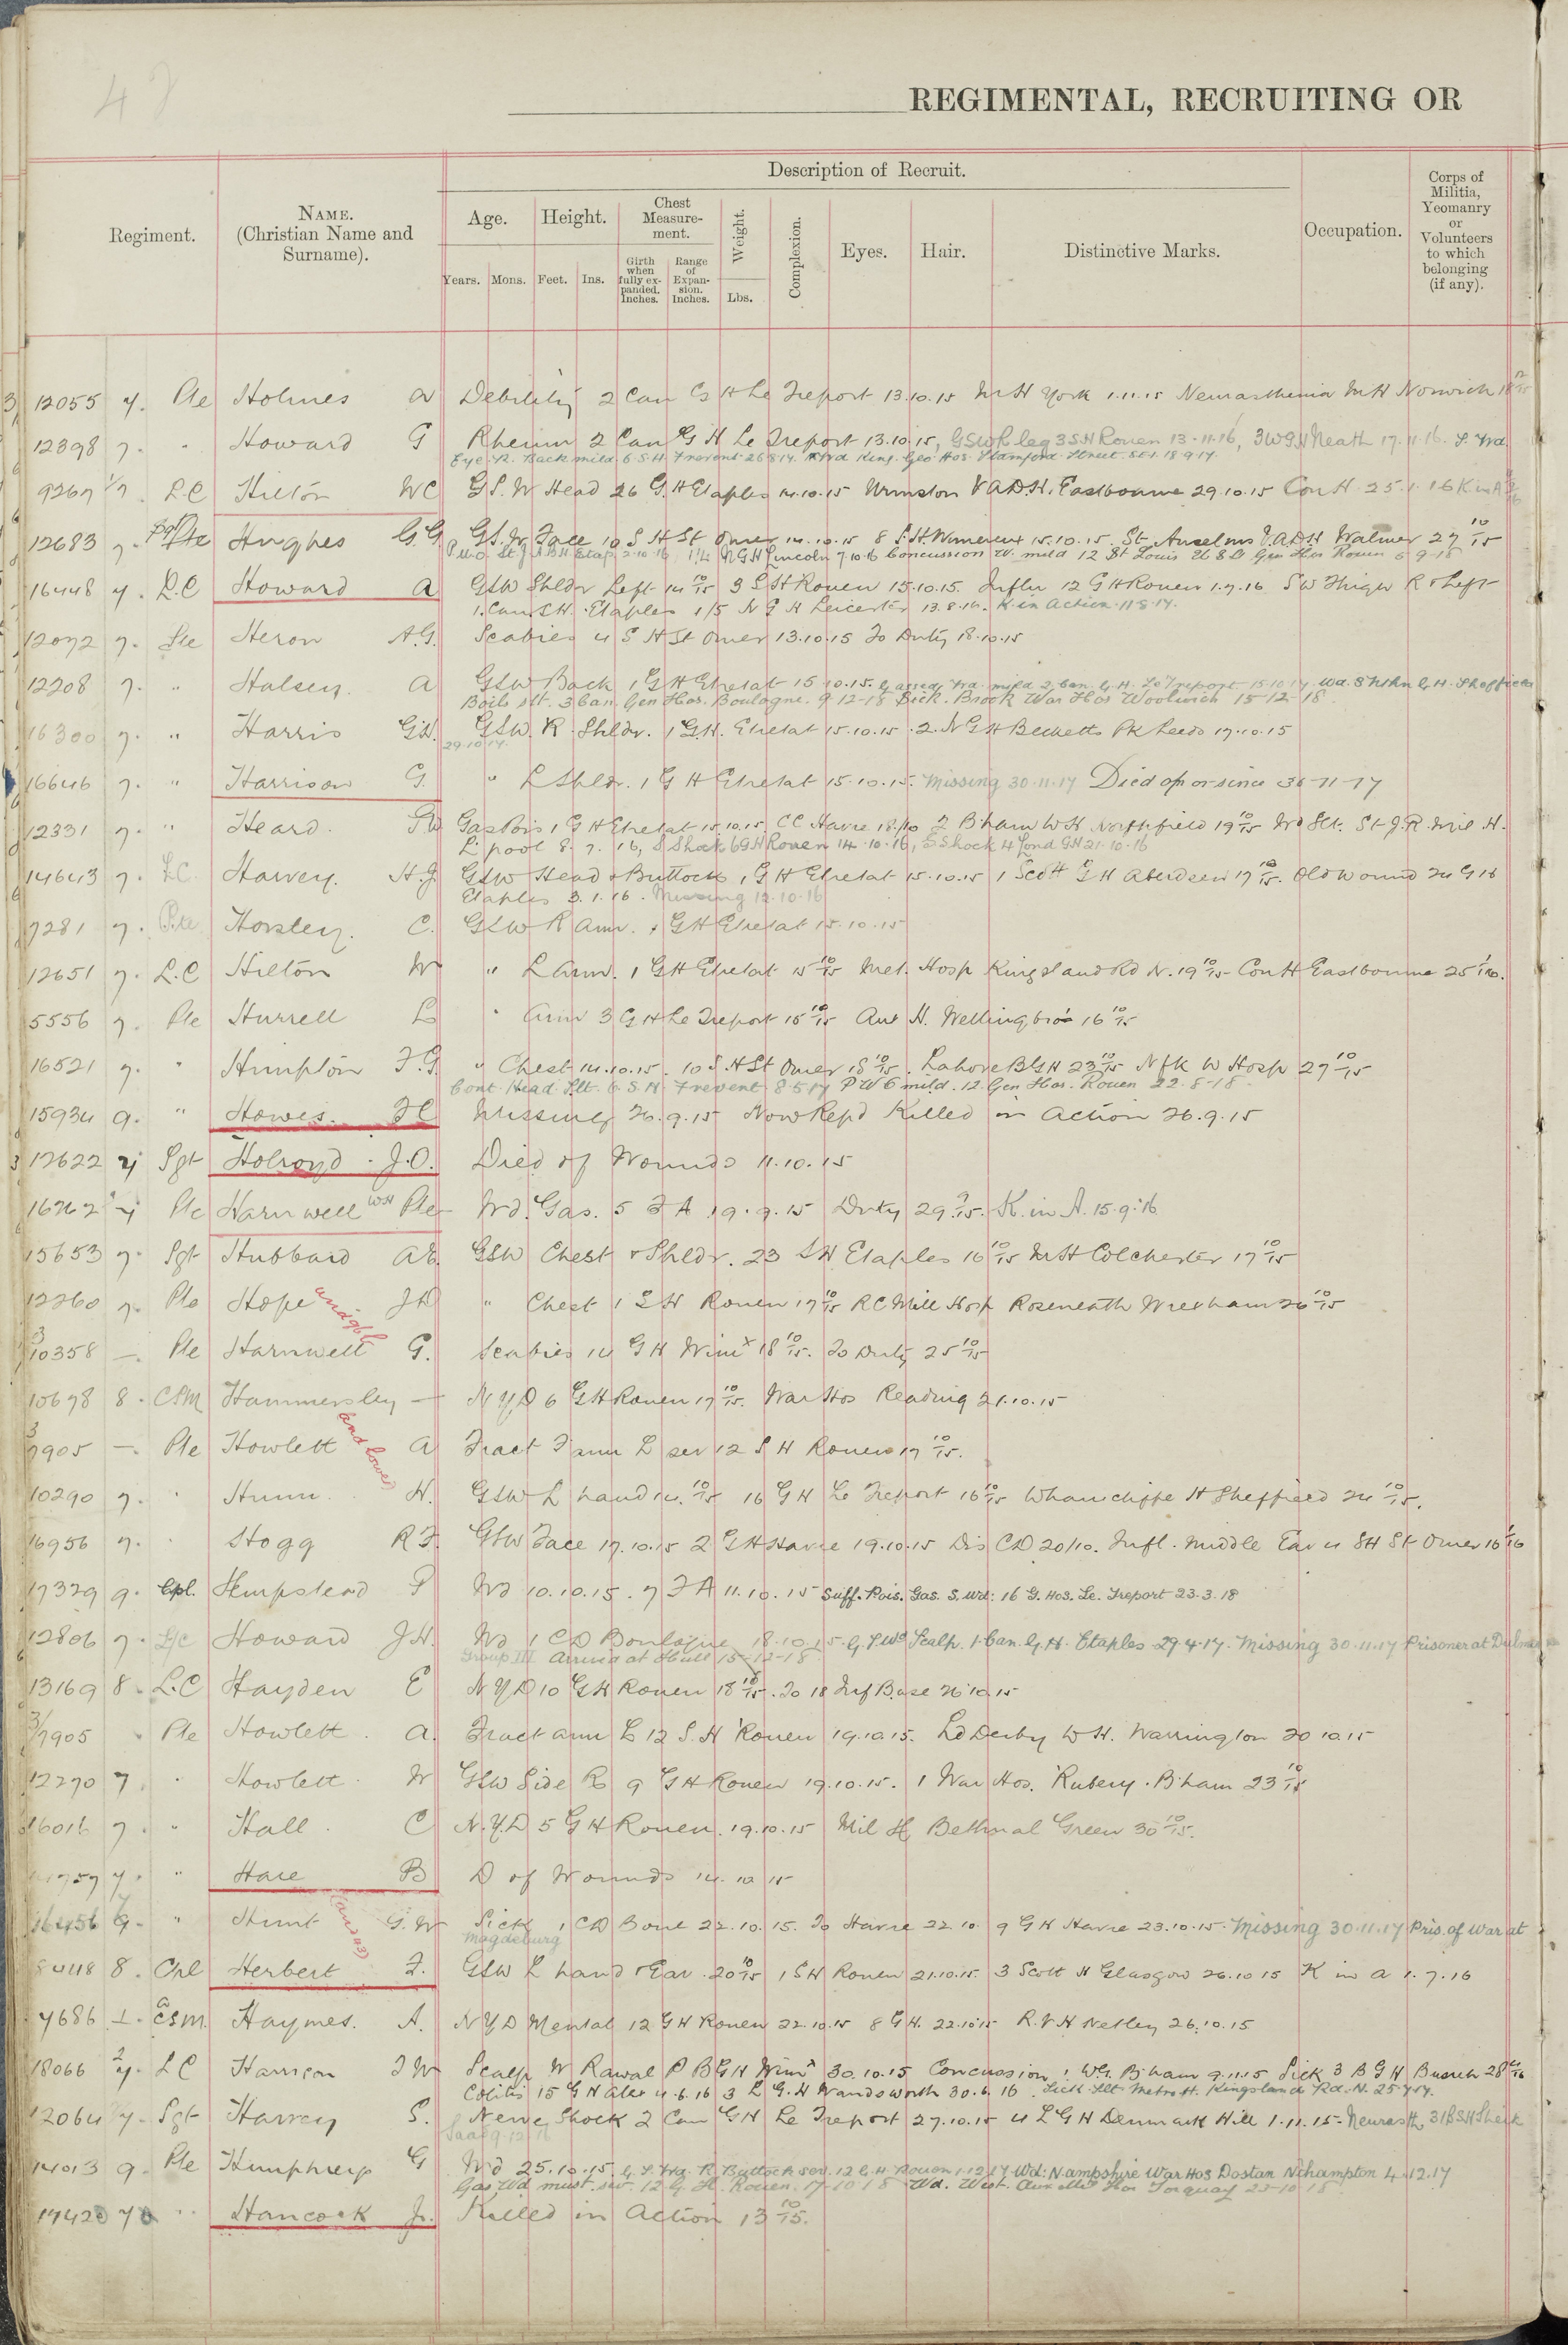 48
REGIMENTAL, RECRUITING OR
Description of Recruit.
Regiment.
NAME.
(Christian Name and
Surname).
Age.
Height.
Chest
Measure-
ment.
Weight.
Complexion.
Eyes.
Hair.
Distinctive Marks.
Occupation.
Corps of
Militia,
Yeomanry
or
Volunteers
to which
belonging
(if any).
Years.
Mons.
Feet.
Ins.
Girth
when
fully ex-
panded.
Inches.
Range
of
Expan-
sion.
Inches.
Lbs.
3/ 12055 7. Pte Holmes W Debility 2 Can G H Le Treport 13.10.15 M H York 1.11.15 Neurasthenia M H Norwich 18 12/15
12398 7. " Howard G Rheum 2 Can G H Le Treport 13.10.15, GSW R leg 3 S H Rouen 13.11.16, 3 W G H Neath 17.11.16. S. Wd
Eye. R. Back mild. 6 S.H. Frevent 26.8.17. Wd King. Geo. Hos. Stamford Street. SE1. 18.9.17.
9267 1/7. L.C Hilton W C G S. W Head 26 G. H Etaples 14.10.15 Urmston V A D.H. Eastbourne 29.10.15 Con H. 25.1.16 K in A
12683 7. Pte Hughes G. G. G S. W. Face 10 S H St Omer 14.10.15 8 S. H Wimereux 15.10.15. St Anselms V.A.D.H Walmer 27 10/15
St J A B H Etap 2.10.16 N G H Lincoln 7.10.16 Concussion W. mild 12 St Louis U S A Gen Hos Rouen 6.9.18
16448 7. L.C Howard A GSW Shldr Left 14 10/15 3 S H Rouen 15.10.15. Influ 12 G H Rouen 1.7.16 S W Thigh R & Left
1. Can S H. Etaples 1/5 N G H Leicester 13.8.16. K in Action. 11.8.17.
12072 7. Pte Heron A.G. Scabies 4 S H St Omer 13.10.15 To Duty 18.10.15
12208 7. " Halsey. A GSW Back 1 G H Etretat 15.10.15. Gassed Wd. mild 2 Can. G. H. Le Treport 15.10.17. Wd. 3 Nthn G. H. Sheffield
Boils slt. 3 Can. Gen Hos. Boulogne. 9-12-18 Sick. Brook War Hos Woolwich 15-12-18.
16300 7. " Harris G.H. GSW. R. Shldr. 1 G.H. Etretat 15.10.15. 2. N G H Becketts Pk Leeds 17.10.15
29.10.17.
16646 7. " Harrison G. " L Shldr. 1 G H Etretat 15.10.15. Missing 30.11.17 Died on or since 30-11-17
12331 7. " Heard. P W Gas Pois 1 G H Etretat 15.10.15. C C Havre 18/10 2 B'ham W H Northfield 19 10/15 Wd Slt. St. J. R. Mil. H.
L'pool 8.7.16, S Shock 6 G H Rouen 14.10.16, S Shock 4 Lond G H 21.10.16
14643 7. L.C. Harvey. H. J. GSW Head & Buttock 1 G H Etretat 15.10.15 1 Scott G H Aberdeen 17 10/15. Old Wound 24 G H
Etaples 3.1.16. Missing 12.10.16
7281 7. Pte Horsley. C. GSW R Arm. 1 G H Etretat 15.10.15
12651 7. L.C Hilton W " L Arm. 1 G H Etretat 15 10/15 Met. Hosp Kingsland Rd N. 19 10/15 Con H Eastbourne 25 1/16.
5556 7. Pte Hurrell L " Arm 3 G H Le Treport 15 10/15 Aux H. Wellingboro 16 10/15
16521 7. " Humpton F. G. " Chest 14.10.15. 10 S. H St Omer 15 10/15. Lahore B G H 23 10/15 Nfk W Hosp 27 10/15
Cont. Head. Slt. 6. S. H. Frevent. 8.5.17 P W C mild. 12. Gen Hos. Rouen 22-8-18
15934 9. " Howes. F C Missing 26.9.15 Now Rep'd Killed in Action 26.9.15
3 12622 7 Sgt Holroyd J. O. Died of Wounds 11.10.15
16262 7 Pte Harnwell W H Pte Wd. Gas. 5 F A 19.9.15 Duty 29 9/15. K. in A. 15.9.16
15653 7. Sgt Hubbard A E. GSW Chest & Shldr. 23 G H Etaples 16 10/15 M H Colchester 17 10/15
12260 7. Pte Hope J D " Chest 1 S H Rouen 17 10/15 R C Mill Hosp Roseneath Wrexham 26 10/15
3/10358 — Pte Harnwell G. Scabies 14 G H Wimx 18 10/15. To Duty 25 10/15
10678 8. CSM Hammersley — N Y D 6 G H Rouen 17 10/15. War Hos Reading 21.10.15
3/7905 —. Pte Howlett and lower A Fract F arm L sev 12 S H Rouen 17 10/15.
10290 7. " Hunn. H. GSW L hand 14. 10/15 16 G H Le Treport 16 10/15 Wharncliffe H Sheffield 24 10/15.
16956 7. " Hogg R F. GSW Face 17.10.15 2 G H Havre 19.10.15 Dis C D 20/10. Infl. Middle Ear 4 S H St Omer 16 1/16
17329 9. Cpl. Hempstead P Wd 10.10.15. 7 F A 11.10.15 Suff. Pois. Gas. S. Wd: 16 G. Hos. Le. Treport 23.3.18
12806 7. L/c Howard J H. Wd 1 C D Boulogne 18.10.15. G. S. Wd Scalp. 1. Can. G. H. Etaples 29.4.17. Missing 30.11.17 Prisoner at
Group III Arrived at Hull 15-12-18
13169 8. L.C Hayden E N Y D 10 G H Rouen 18 10/15. To 18 Inf Base 26.10.15
3/7905 Pte Howlett. A. Fract arm L 12 S. H Rouen 19.10.15. Ld Derby W H. Warrington 20.10.15
12270 7. " Howlett. W GSW Side R 9 G H Rouen 19.10.15. 1 War Hos. Rubery. B'ham 23 10/15
16016 7. " Hall. C N.Y.D 5 G H Rouen. 19.10.15 Mil H Bethnal Green 30 10/15.
7. " Hare B D of Wounds 14.10.15
16456 9. " Hunt G. W Sick 1 C D Boul 22.10.15. To Havre 22.10. 9 G H Havre 23.10.15. Missing 30.11.17 Pris. of War at
Magdeburg
8. Cpl Herbert F. GSW L hand & Ear. 20 10/15 1 S H Rouen 21.10.15. 3 Scott H Glasgow 26.10.15 K in A 1.7.16
7686 1. CSM. Haymes. A. N Y D Mental 12 G H Rouen 22.10.15 8 G H. 22.10.15 R. V H Netley 26.10.15
18066 2/7. L C Harrison J W Scalp W Rawal P B G H Wimx 30.10.15 Concussion 1 W G. B'ham 9.11.15 Sick 3 B G H
Colitis 15 G H Alex 4.6.16 3 L G. H Wandsworth 30.6.16. Sick Slt Metro H. Kingsland Rd. N. 25.7.17.
12064 7. Sgt Harvey S. Nerve Shock 2 Can G H Le Treport 27.10.15 4 L G H Denmark Hill 1.11.15. Neurasth,
14013 9. Pte Humphreys G Wd 25.10.15. G. S. Wd. R. Buttock sev. 12 G. H. Rouen 1.12.17 Wd: N.ampshire War Hos Dostan N'hampton 4.12.17
Gas Wd. must. sev. 12 G. H. Rouen. 17-10-18 Wd. West. Aux Hos Torquay 23-10-18
17420 7 " Hancock J. Killed in Action 13 10/15.